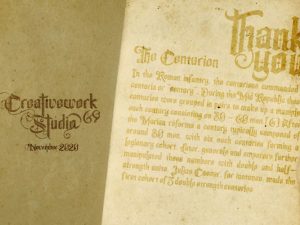 Creativework
Studio 69
November 2020
Thank
you
The Centurion
In the Roman infantry, the centurion commanded
centuria or "century". During the Mid Republic
centuries were grouped in pairs to make a
each century consisting of 30 - 60 men
the Marian reforms a century typically composed
around 80 men, with six such centuries forming a
legionary cohort. Later, generals and emperors further
manipulated these numbers with double and half-
strength units. Julius Caesar, for instance, made the
first cohort of 5 double strength centuries.